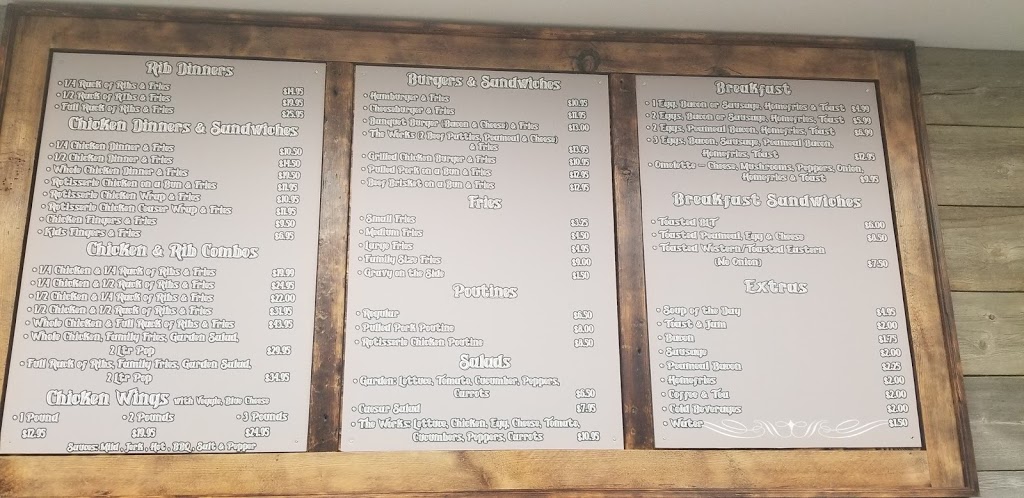 Rib Dinners
• 1/4 Rack of Ribs & Fries $14.95
• 1/2 Rack of Ribs & Fries $19.95
• Full Rack of Ribs & Fries $25.95
Chicken Dinners & Sandwiches
• 1/4 Chicken Dinner & Fries $10.50
• 1/2 Chicken Dinner & Fries $14.50
• Whole Chicken Dinner & Fries $19.50
• Rotisserie Chicken on a Bun & Fries $11.95
• Rotisserie Chicken Wrap & Fries $10.95
• Rotisserie Chicken Caesar Wrap & Fries $11.95
• Chicken Fingers & Fries $9.50
• Kids Fingers & Fries $6.95
Chicken & Rib Combos
• 1/4 Chicken & 1/4 Rack of Ribs & Fries
• 1/4 Chicken & 1/2 Rack of Ribs & Fries $24.95
• 1/2 Chicken & 1/4 Rack of Ribs & Fries $22.00
• 1/2 Chicken & 1/2 Rack of Ribs & Fries $31.95
• Whole Chicken & Full Rack of Ribs & Fries $43.95
• Whole Chicken, Family Fries, Garden Salad,
2 Ltr Pop $29.95
• Full Rack of Ribs, Family Fries, Garden Salad,
2 Ltr Pop $34.95
Chicken Wings with Veggie, Blue Cheese
• 1 Pound • 2 Pounds • 3 Pounds
$12.95 $19.95 $24.95
Sauces: Mild, Jerk, Hot, BBQ, Salt & Pepper
Burgers & Sandwiches
• Hamburger & Fries $10.95
• Cheeseburger & Fries $11.95
• Banquet Burger (Bacon & Cheese) & Fries $13.00
• The Works (2 Beef Patties, Peameal & Cheese)
& Fries $13.95
• Grilled Chicken Burger & Fries $10.95
• Pulled Pork on a Bun & Fries $12.95
• Beef Brisket on a Bun & Fries $12.95
Fries
• Small Fries $3.25
• Medium Fries $4.50
• Large Fries $4.95
• Family Size Fries $9.00
• Gravy on the Side $1.50
Poutines
• Regular $6.50
• Pulled Pork Poutine $8.00
• Rotisserie Chicken Poutine $8.50
Salads
• Garden: Lettuce, Tomato, Cucumber, Peppers,
Carrots $6.50
• Caesar Salad $7.95
• The Works: Lettuce, Chicken, Egg, Cheese, Tomato,
Cucumbers, Peppers, Carrots $10.95
Breakfast
• 1 Egg, Bacon or Sausage, Homefries & Toast $4.99
• 2 Eggs, Bacon or Sausage, Homefries, Toast $5.99
• 2 Eggs, Peameal Bacon, Homefries, Toast $6.99
• 3 Eggs, Bacon, Sausage, Peameal Bacon,
Homefries, Toast $12.95
• Omelette – Cheese, Mushrooms, Peppers, Onion,
Homefries & Toast $9.95
Breakfast Sandwiches
• Toasted BLT $6.00
• Toasted Peameal, Egg & Cheese $8.50
• Toasted Western/Toasted Eastern
(No Onion) $7.50
Extras
• Soup of the Day $4.95
• Toast & Jam $2.00
• Bacon $1.75
• Sausage $2.00
• Peameal Bacon $2.25
• Homefries $2.00
• Coffee & Tea $2.00
• Cold Beverages $2.00
• Water $1.50